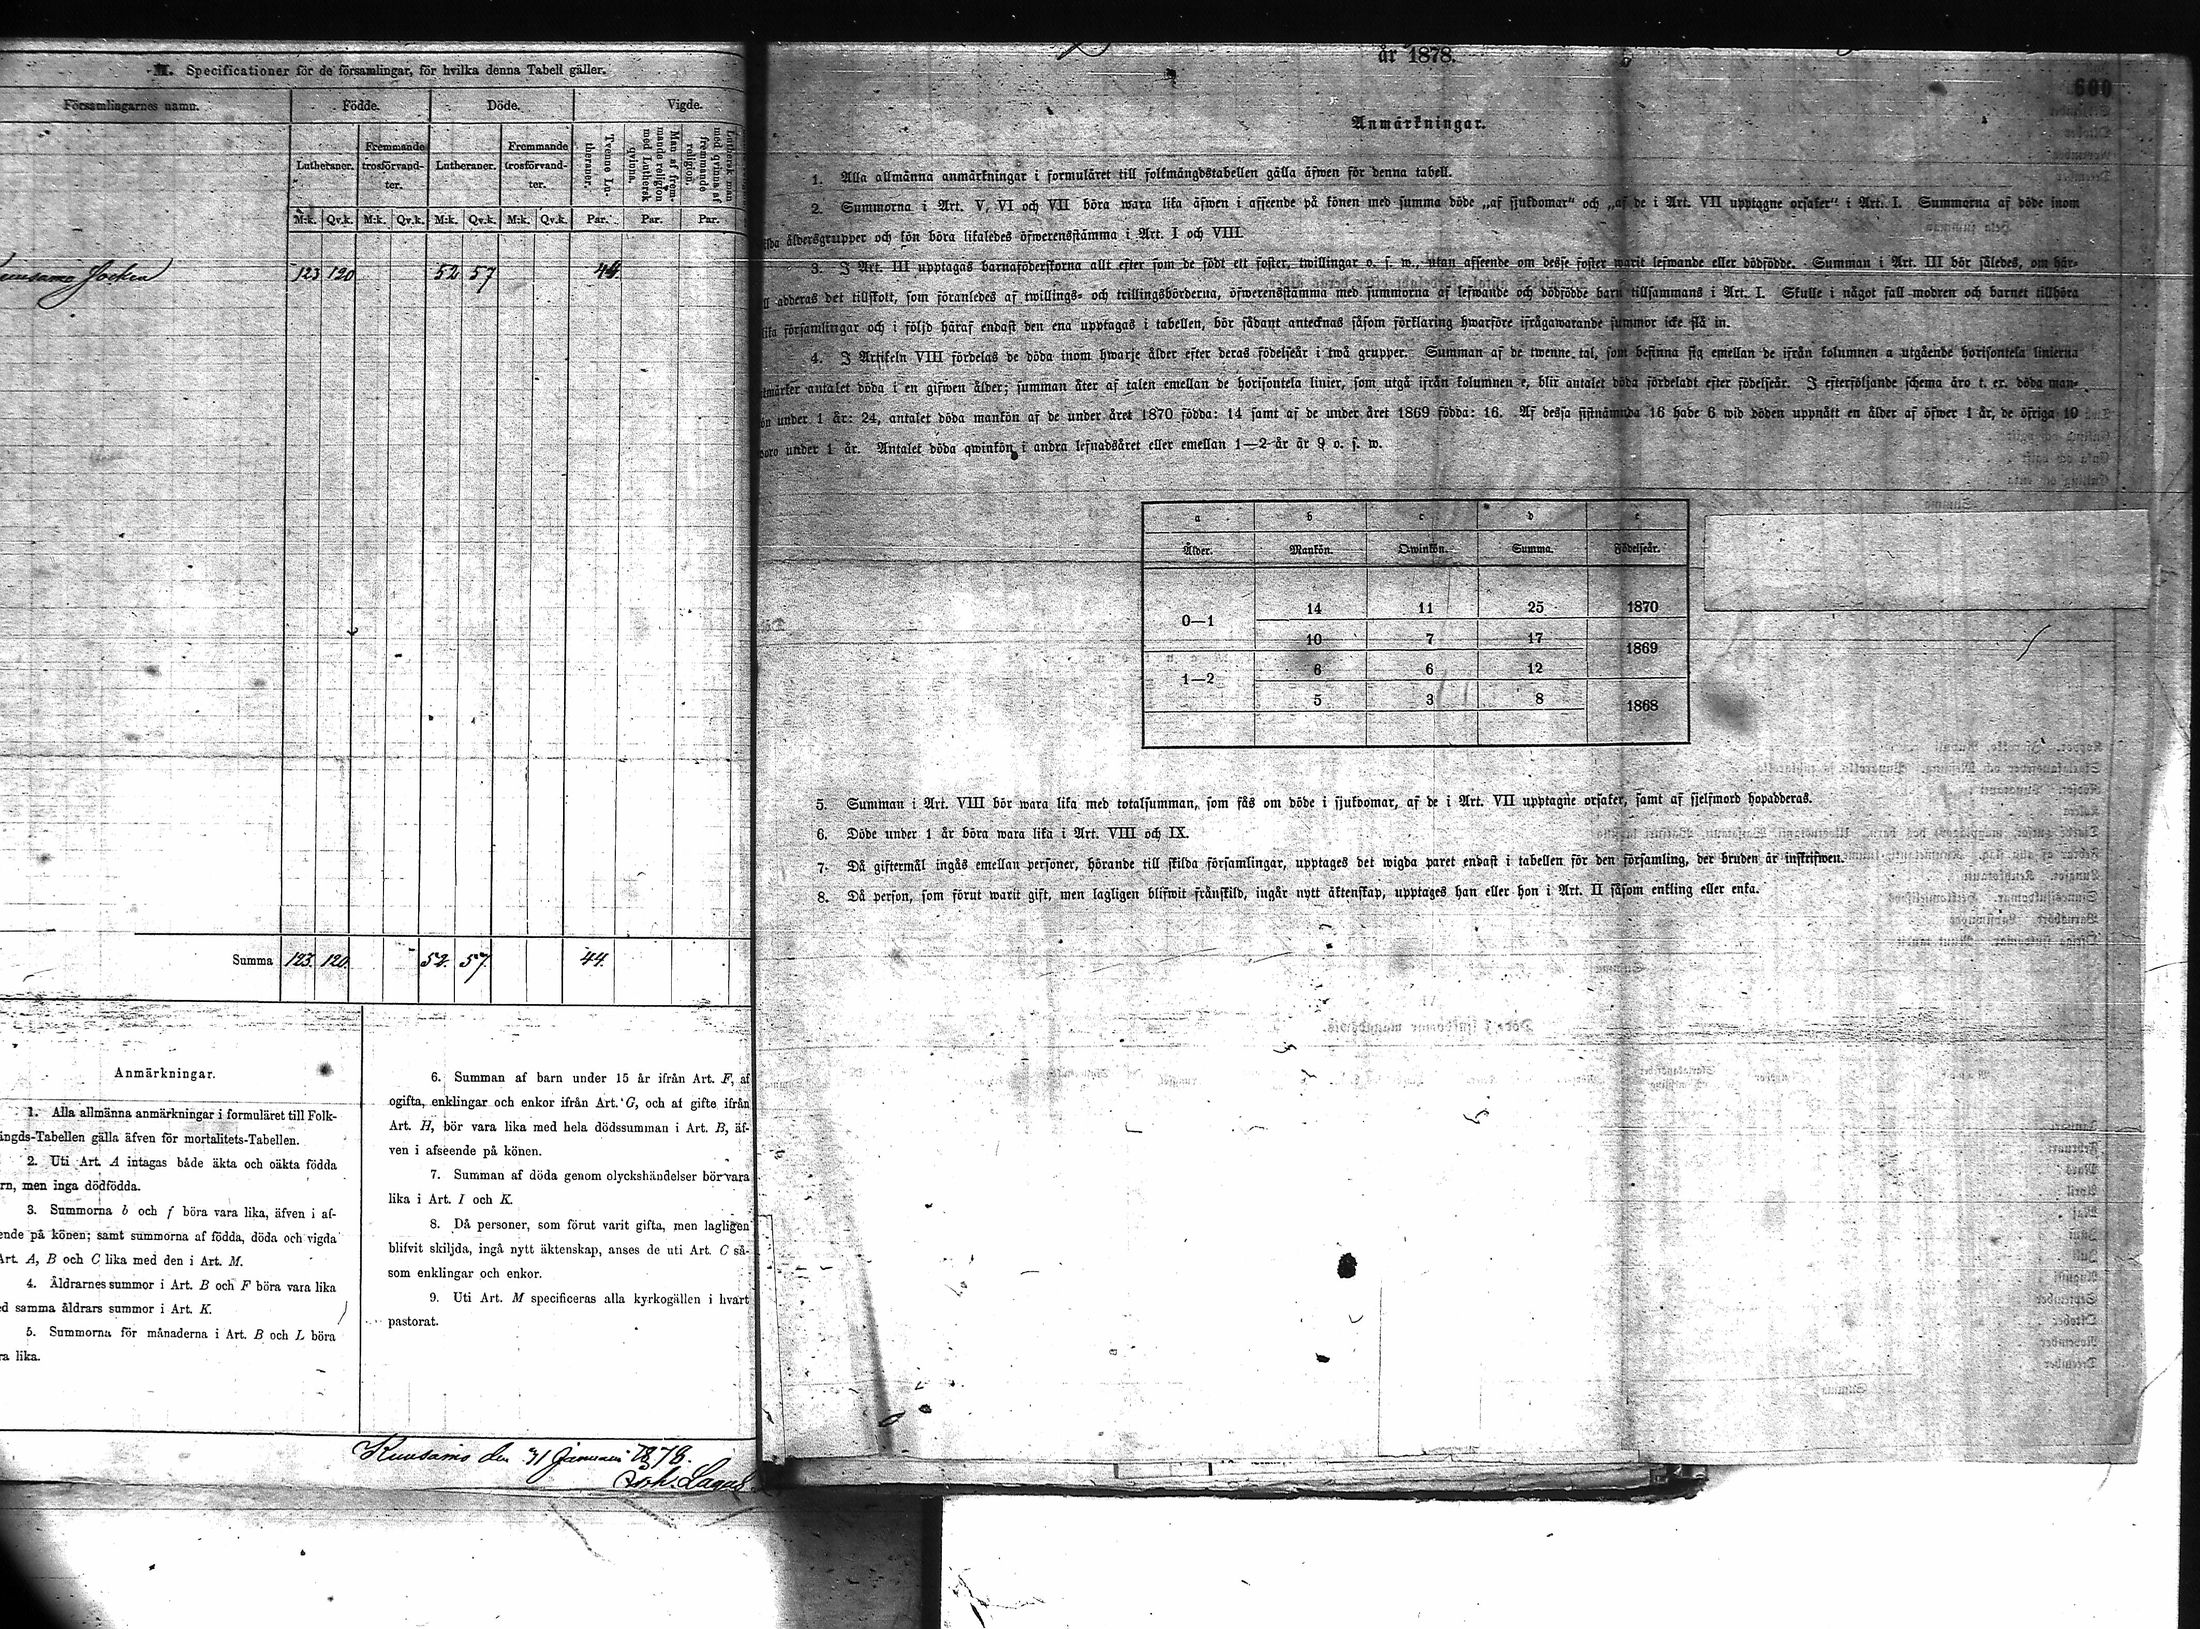 M. Specificationer för de församlingar, för hvilka denna Tabell gäller.
Församlingarnes namn. Födde. Döde. Vigde.
Lutheraner. Fremmande trosförvandter. Lutheraner. Fremmande trosförvandter. Tvenne Lutheraner. Man af fremmande religion med Luthersk qvinna. Luthersk man med qvinna af fremmande religion.
M:k. Qv.k. M:k. Qv.k. M:k. Qv.k. M:k. Qv.k. Par. Par. Par.
Socken 123 120 52 57 44
Summa 123. 120. 52. 57. 44.
Anmärkningar.
1. Alla allmänna anmärkningar i formuläret till Folk-
ängds-Tabellen gälla äfven för mortalitets-Tabellen.
2. Uti Art. A intagas både äkta och oäkta födda
rn, men inga dödfödda.
3. Summorna b och f böra vara lika, äfven i af-
ende på könen; samt summorna af födda, döda och vigda
Art. A, B och C lika med den i Art. M.
4. Åldrarnes summor i Art. B och F böra vara lika
d samma åldrars summor i Art. K.
5. Summorna för månaderna i Art. B och L böra
ra lika.
6. Summan af barn under 15 år ifrån Art. F, af
ogifta, enklingar och enkor ifrån Art. G, och af gifte ifrån
Art. H, bör vara lika med hela dödssumman i Art. B, äf-
ven i afseende på könen.
7. Summan af döda genom olyckshändelser bör vara
lika i Art. I och K.
8. Då personer, som förut varit gifta, men lagligen
blifvit skiljda, ingå nytt äktenskap, anses de uti Art. C så-
som enklingar och enkor.
9. Uti Art. M specificeras alla kyrkogällen i hvart
pastorat.
Kuusamo den 31 Januari 1878.
år 1878.
600
Anmärkningar.
1. Alla allmänna anmärkningar i formuläret till folkmängdstabellen gälla äfwen för denna tabell.
2. Summorna i Art. V, VI och VII böra wara lika äfwen i afseende på könen med summa döde „af sjukdomar" och „af de i Art. VII upptagne orsaker" i Art. I. Summorna af döde inom
ilda åldersgrupper och kön böra likaledes öfwerensstämma i Art. I och VIII.
3. I Art. III upptagas barnaföderskorna allt efter som de födt ett foster, twillingar o. s. w., utan afseende om desse foster warit lefwande eller dödfödde. Summan i Art. III bör således, om här-
ll adderas det tillskott, som föranledes af twillings- och trillingsbörderna, öfwerensstämma med summorna af lefwande och dödfödde barn tillsammans i Art. I. Skulle i något fall modren och barnet tillhöra
lika församlingar och i följd häraf endast den ena upptagas i tabellen, bör sådant antecknas såsom förklaring hwarföre ifrågawarande summor icke slå in.
4. I Artikeln VIII fördelas de döda inom hwarje ålder efter deras födelseår i twå grupper. Summan af de twenne tal, som befinna sig emellan de ifrån kolumnen a utgående horisontela linierna
tmärker antalet döda i en gifwen ålder; summan åter af talen emellan de horisontela linier, som utgå ifrån kolumnen e, blir antalet döda fördeladt efter födelseår. I efterföljande schema äro t. ex. döda man-
ön under 1 år: 24, antalet döda mankön af de under året 1870 födda: 14 samt af de under året 1869 födda: 16. Af dessa sistnämnda 16 hade 6 wid döden uppnått en ålder af öfwer 1 år, de öfriga 10
woro under 1 år. Antalet döda qwinkön i andra lefnadsåret eller emellan 1—2 år är 9 o. s. w.
a b c d e
Ålder. Mankön. Qwinkön. Summa. Födelseår.
0—1 14 11 25 1870
10 7 17 1869
1—2 6 6 12
5 3 8 1868
5. Summan i Art. VIII bör wara lika med totalsumman, som fås om döde i sjukdomar, af de i Art. VII upptagne orsaker, samt af sjelfmord hopadderas.
6. Döde under 1 år böra wara lika i Art. VIII och IX.
7. Då giftermål ingås emellan personer, hörande till skilda församlingar, upptages det wigda paret endast i tabellen för den församling, der bruden är inskrifwen.
8. Då person, som förut warit gift, men lagligen blifwit frånskild, ingår nytt äktenskap, upptages han eller hon i Art. II såsom enkling eller enka.